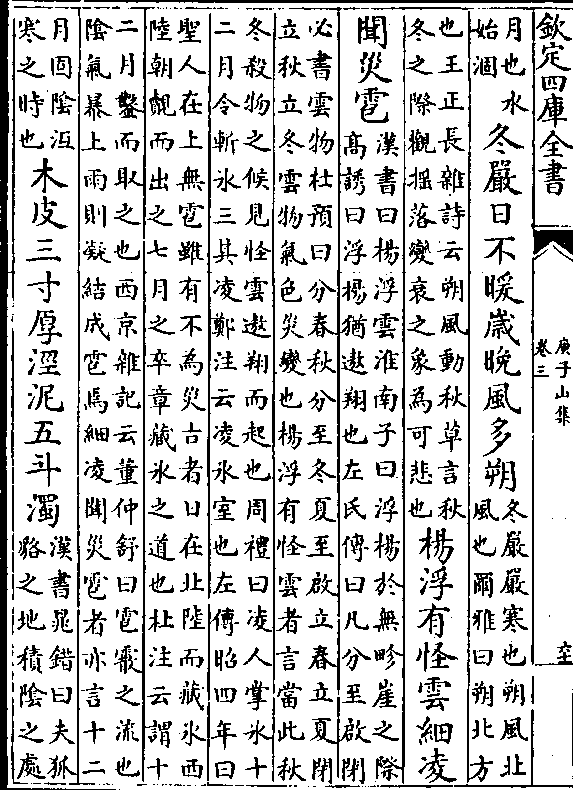 欽定四庫全書
庾子山集
卷三
月也水
始涸
冬嚴日不暖歲晚風多朔
冬嚴嚴寒也朔風北
風也爾雅曰朔北方
也王正長雜詩云朔風動秋草言秋
冬之際觀揺落變衰之象為可悲也
楊浮有怪雲細凌
聞災雹
漢書曰楊浮雲淮南子曰浮楊於無畛崖之際
高誘曰浮楊猶遨翔也左氏傳曰凡分至啟閉
必書雲物杜預曰分春秋分至冬夏至啟立春立夏閉
立秋立冬雲物氣色災變也楊浮有怪雲者言當此秋
冬殺物之候見怪雲遨翔而起也周禮曰凌人掌氷十
二月令斬氷三其凌鄭注云凌氷室也左傳昭四年曰
聖人在上無雹雖有不為災古者日在北陸而藏氷西
陸朝覿而出之七月之卒章藏氷之道也杜注云謂十
二月鑿而取之也西京雜記云董仲舒曰雹霰之流也
陰氣暴上雨則凝結成雹焉細凌聞災雹者亦言十二
月固陰沍
寒之時也
木皮三寸厚涇泥五斗濁
漢書晁錯曰夫狐
貉之地積陰之處